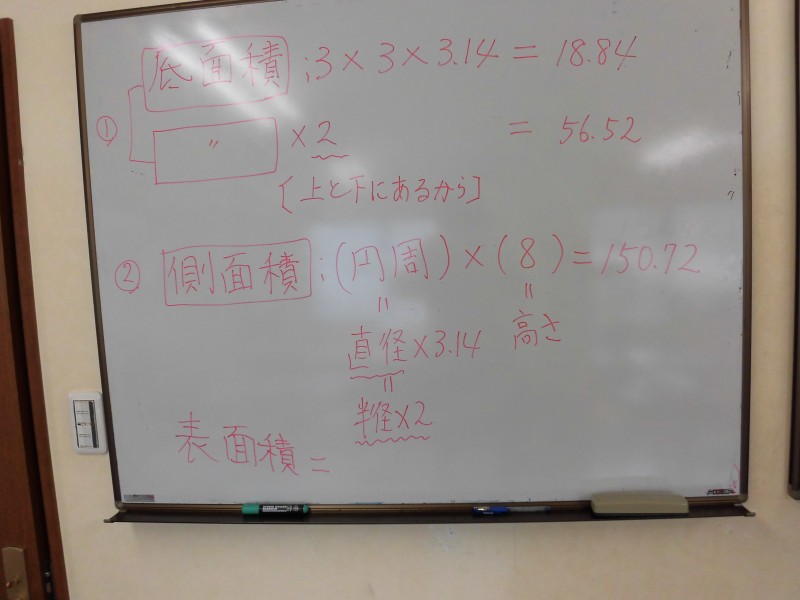 底面積 ; 3 × 3 × 3.14 = 18.84
① 〃 × 2 = 56.52
[上と下にあるから]
② 側面積 ; (円周) × (8) = 150.72
〃 〃
直径×3.14 高さ
〃
半径×2
表面積 =